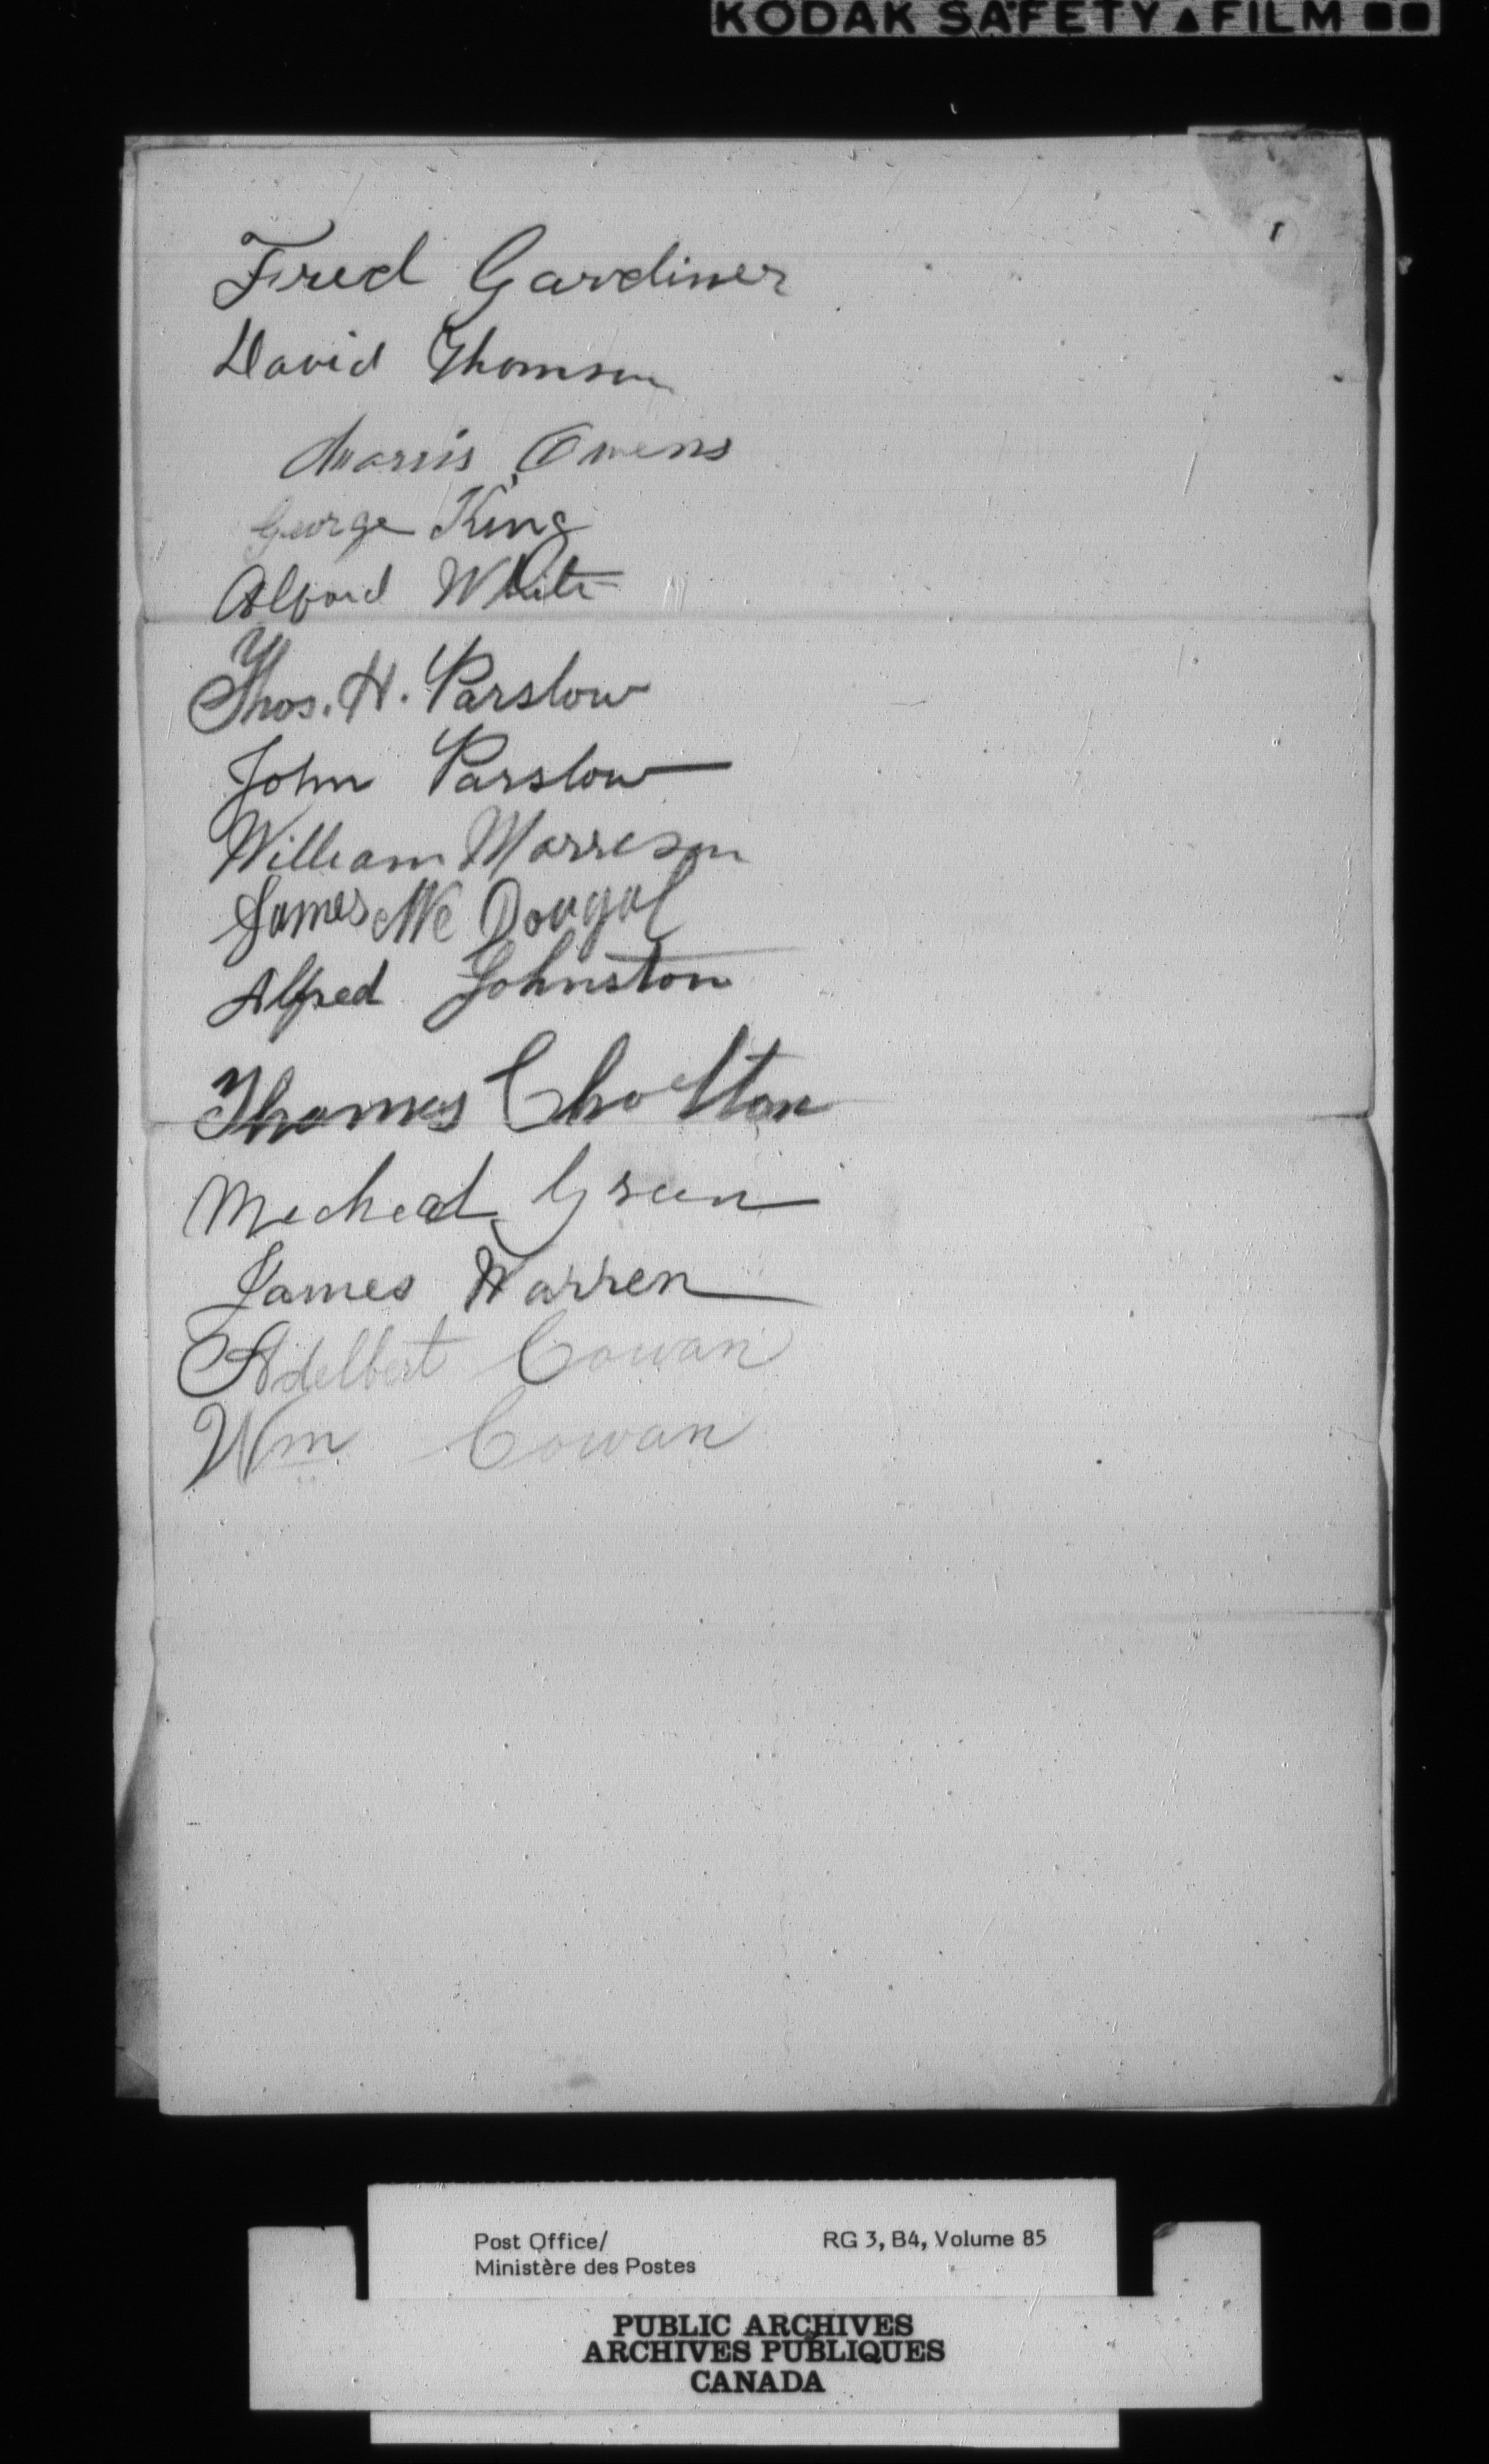 KODAK SAFETY FILM
Fred Gardiner
David Thomson
Morris Owens
George King
Alford White
Thos. H. Parslow
John Parslow
William Morreson
James Mc Dougal
Alfred Johnston
Thomas Cholton
Mecheal Green
James Warren
Adelbert Cowan
Wm Cowan
Post Office/ RG 3, B4, Volume 85
Ministère des Postes
PUBLIC ARCHIVES
ARCHIVES PUBLIQUES
CANADA